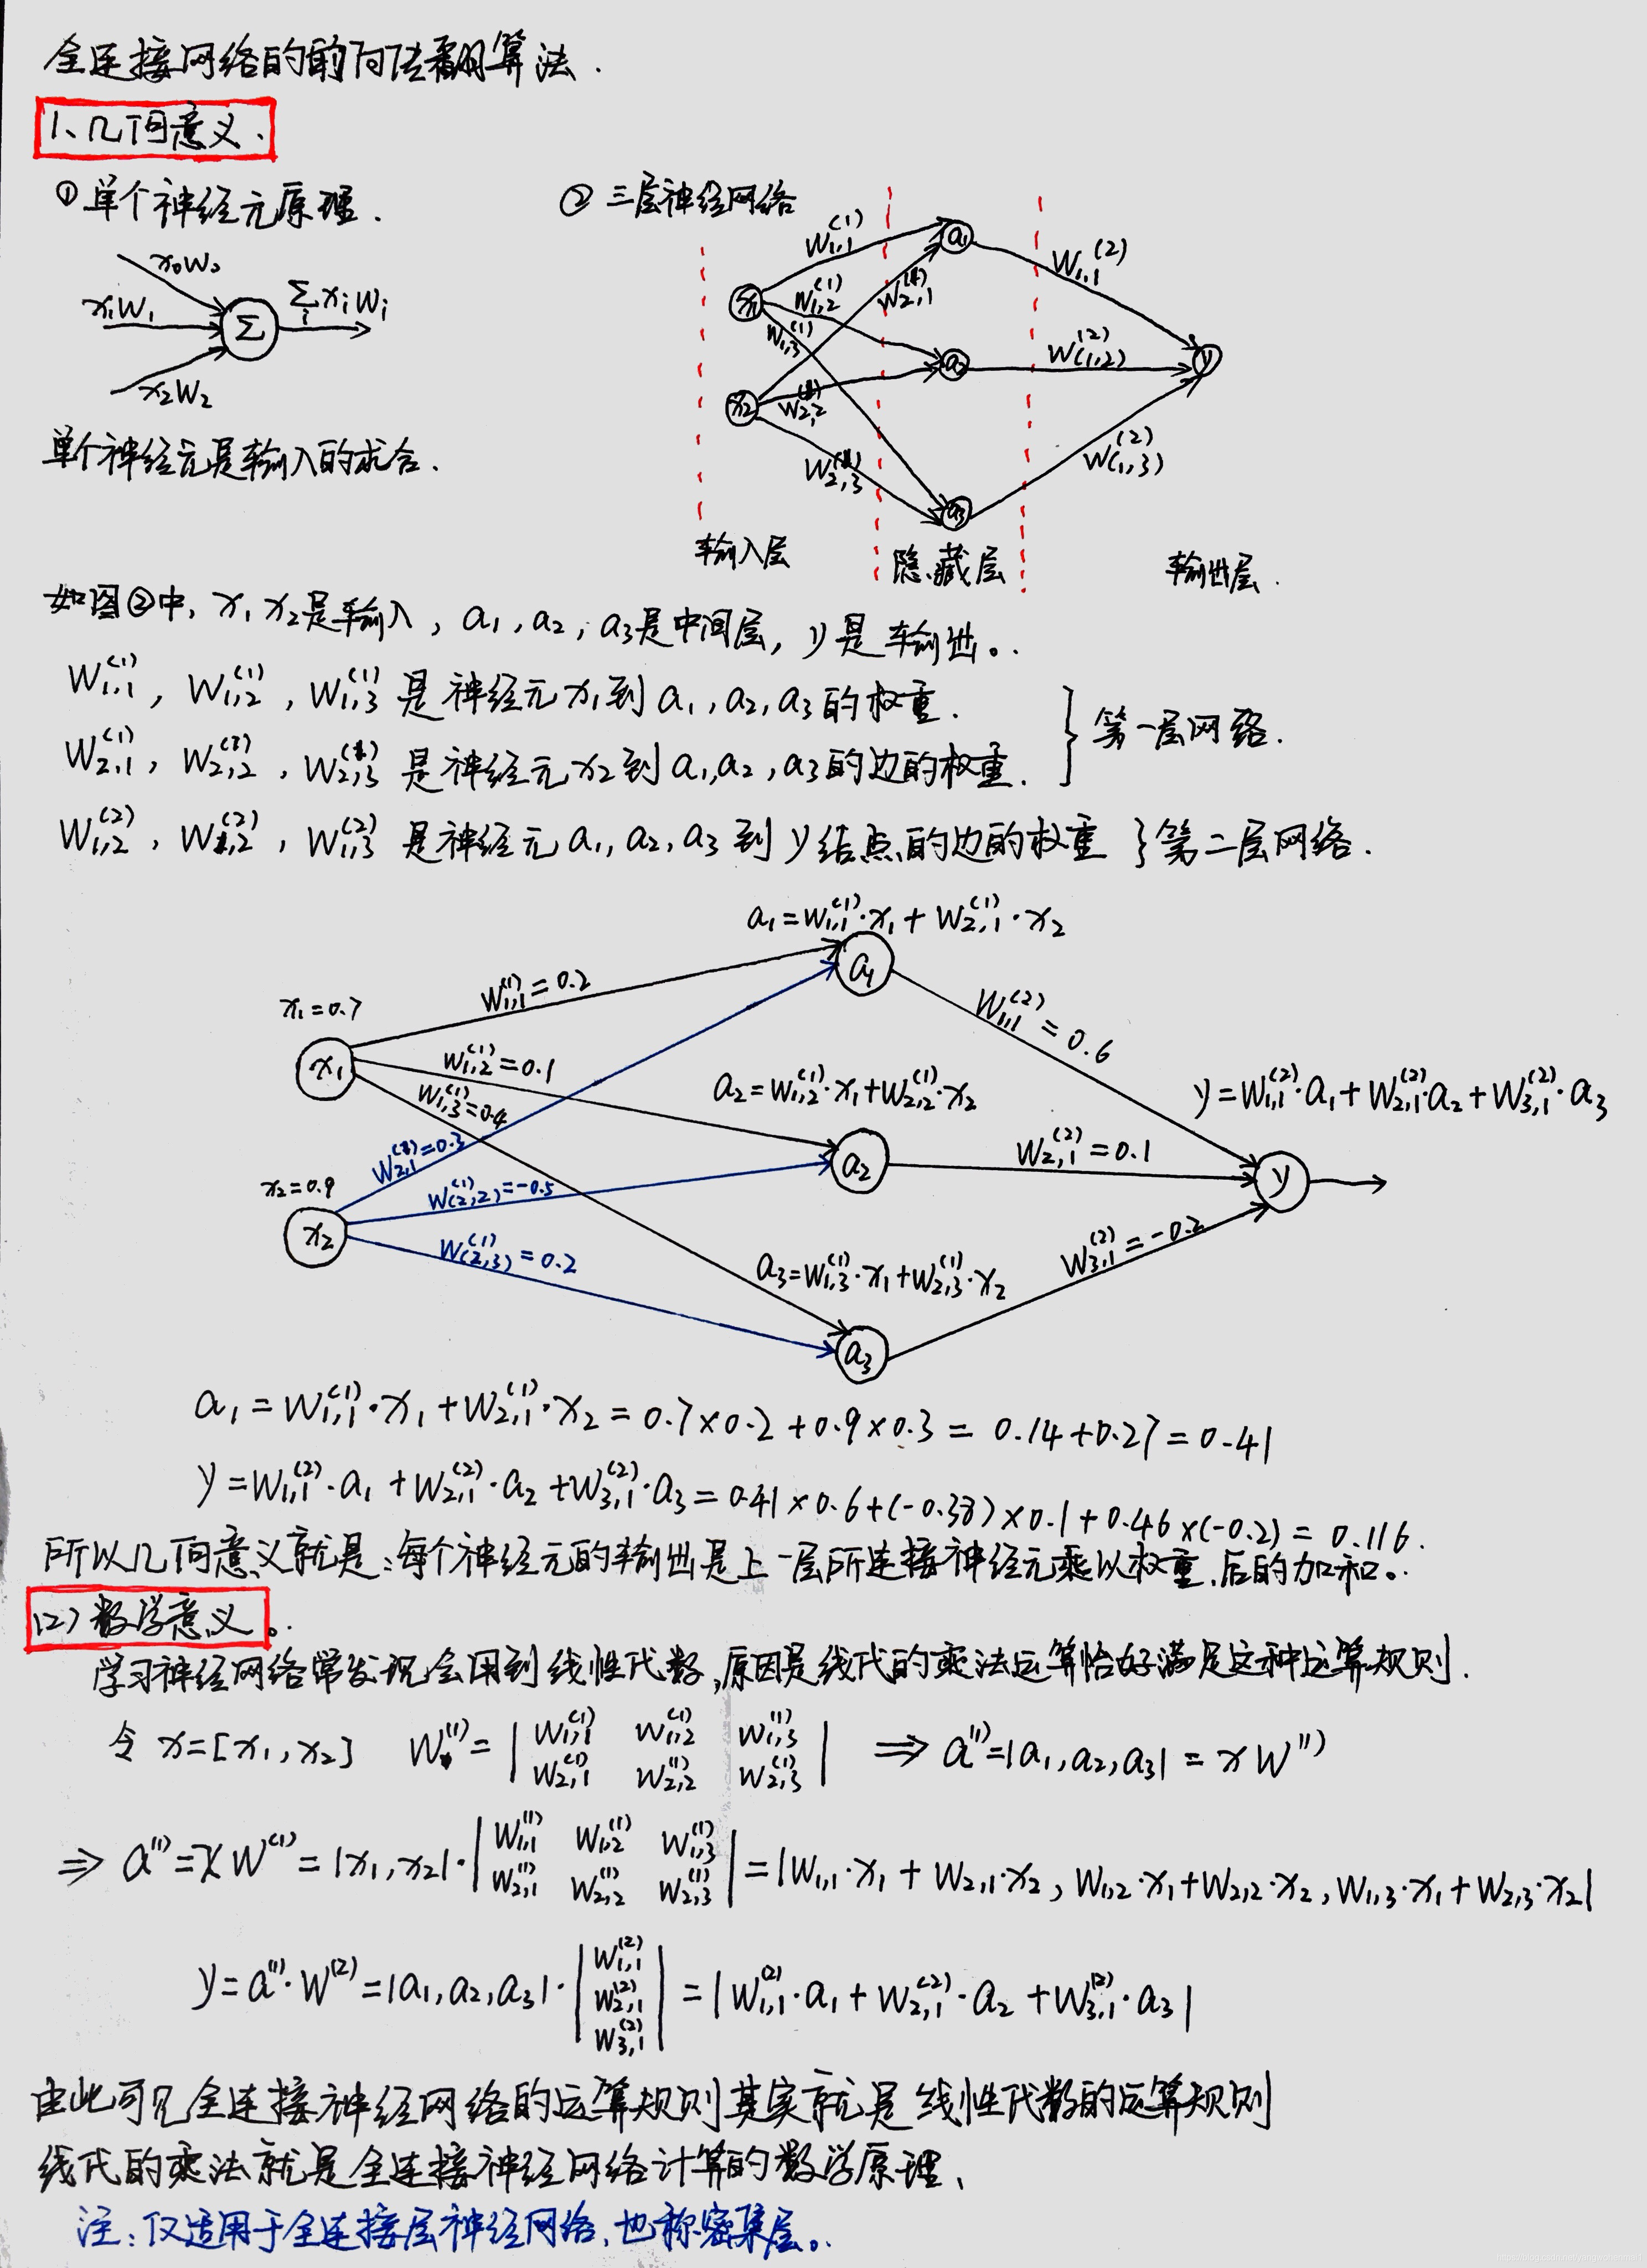 全连接网络的前向传播算法.
1、几何意义.
① 单个神经元原理.
② 三层神经网络
x₀W₀
x₁W₁
x₂W₂
Σ
Σᵢ xᵢWᵢ
单个神经元是输入的求合.
W₁,₁⁽¹⁾
W₁,₂⁽¹⁾
W₁,₃⁽¹⁾
W₂,₁⁽¹⁾
W₂,₂⁽¹⁾
W₂,₃⁽¹⁾
W₁,₁⁽²⁾
W(₁,₂)⁽²⁾
W(₁,₃)⁽²⁾
x₁
x₂
a₁
a₂
a₃
y
输入层 隐藏层 输出层.
如图②中, x₁ x₂是输入, a₁, a₂, a₃是中间层, y是输出。
W₁,₁⁽¹⁾, W₁,₂⁽¹⁾, W₁,₃⁽¹⁾ 是神经元x₁到a₁, a₂, a₃的权重.
W₂,₁⁽¹⁾, W₂,₂⁽¹⁾, W₂,₃⁽¹⁾ 是神经元x₂到a₁, a₂, a₃的边的权重. } 第一层网络.
W₁,₂⁽²⁾, W₁,₂⁽²⁾, W₁,₃⁽²⁾ 是神经元a₁, a₂, a₃到y结点的边的权重 } 第二层网络.
a₁=W₁,₁⁽¹⁾·x₁+W₂,₁⁽¹⁾·x₂
a₁
W₁,₁⁽¹⁾=0.2
x₁=0.7
x₁
W₁,₁⁽²⁾=0.6
W₁,₂⁽¹⁾=0.1
W₁,₃⁽¹⁾=0.4
a₂=W₁,₂⁽¹⁾·x₁+W₂,₂⁽¹⁾·x₂
y=W₁,₁⁽²⁾·a₁+W₂,₁⁽²⁾·a₂+W₃,₁⁽²⁾·a₃
W₂,₁⁽¹⁾=0.3
W₂,₁⁽²⁾=0.1
a₂
y
x₂=0.9
x₂
W(₂,₂)⁽¹⁾=-0.5
W(₂,₃)⁽¹⁾=0.2
W₃,₁⁽²⁾=-0.2
a₃=W₁,₃⁽¹⁾·x₁+W₂,₃⁽¹⁾·x₂
a₃
a₁=W₁,₁⁽¹⁾·x₁+W₂,₁⁽¹⁾·x₂=0.7×0.2+0.9×0.3=0.14+0.27=0.41
y=W₁,₁⁽²⁾·a₁+W₂,₁⁽²⁾·a₂+W₃,₁⁽²⁾·a₃=0.41×0.6+(-0.38)×0.1+0.46×(-0.2)=0.116.
所以几何意义就是:每个神经元的输出是上一层所连接神经元乘以权重后的加和。
(2) 数学意义。
学习神经网络常发现会用到线性代数,原因是线代的乘法运算恰好满足这种运算规则.
令 x=[x₁,x₂] W⁽¹⁾=| W₁,₁⁽¹⁾ W₁,₂⁽¹⁾ W₁,₃⁽¹⁾ ; W₂,₁⁽¹⁾ W₂,₂⁽¹⁾ W₂,₃⁽¹⁾ | ⇒ a⁽¹⁾=|a₁,a₂,a₃|=xW⁽¹⁾
⇒ a⁽¹⁾=xW⁽¹⁾=|x₁,x₂|·| W₁,₁⁽¹⁾ W₁,₂⁽¹⁾ W₁,₃⁽¹⁾ ; W₂,₁⁽¹⁾ W₂,₂⁽¹⁾ W₂,₃⁽¹⁾ |=|W₁,₁·x₁+W₂,₁·x₂, W₁,₂·x₁+W₂,₂·x₂, W₁,₃·x₁+W₂,₃·x₂|
y=a⁽¹⁾·W⁽²⁾=|a₁,a₂,a₃|·| W₁,₁⁽²⁾ ; W₂,₁⁽²⁾ ; W₃,₁⁽²⁾ |=|W₁,₁⁽²⁾·a₁+W₂,₁⁽²⁾·a₂+W₃,₁⁽²⁾·a₃|
由此可见全连接神经网络的运算规则其实就是线性代数的运算规则
线代的乘法就是全连接神经网络计算的数学原理、
注:仅适用于全连接层神经网络,也称密集层。